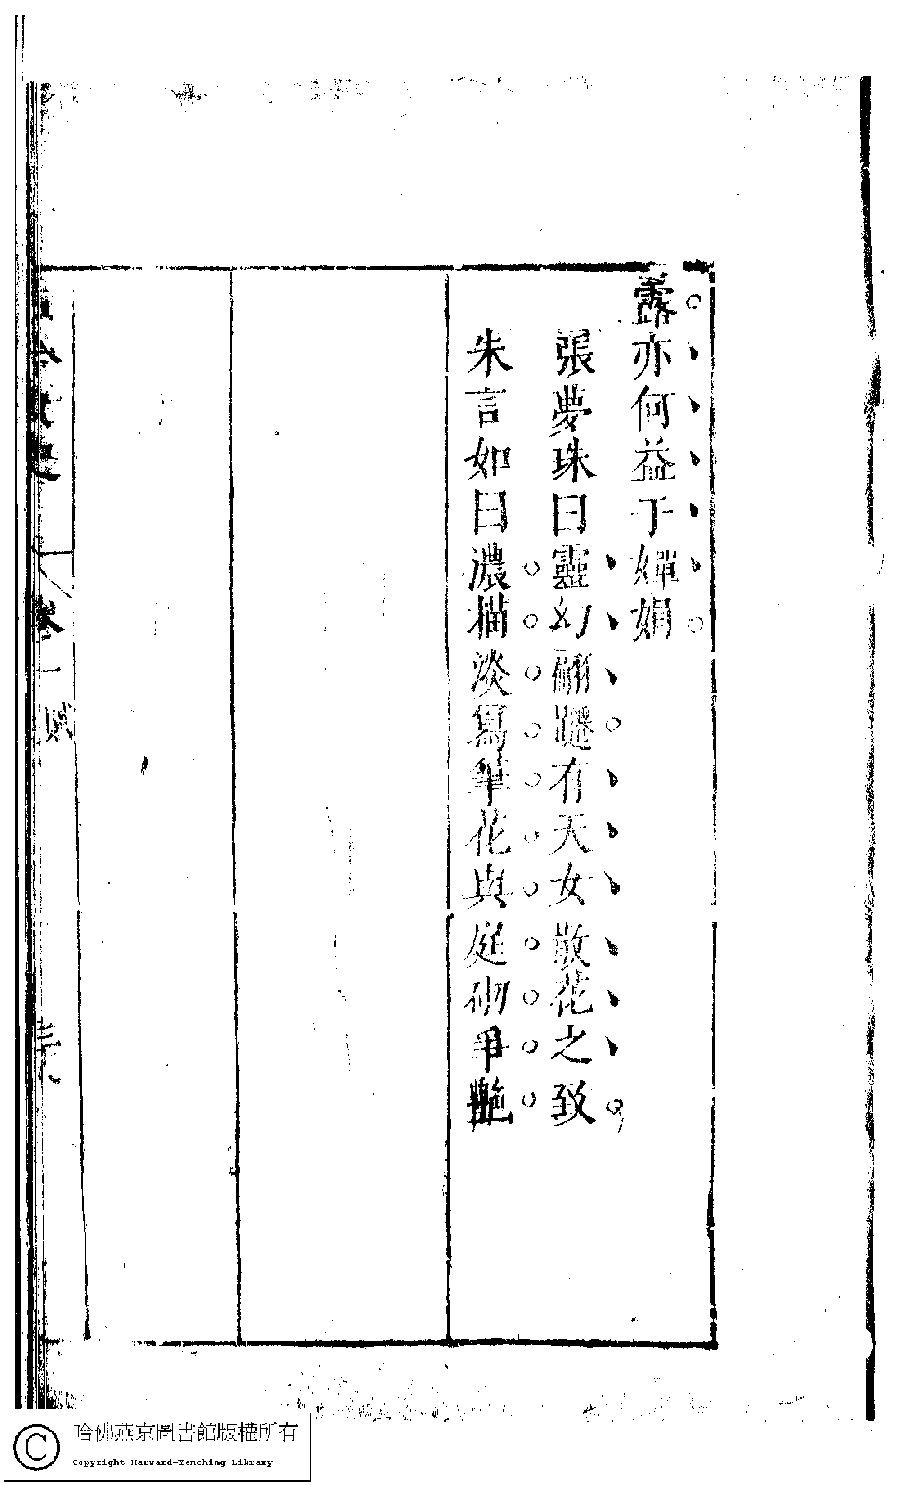 露亦何益于嬋娟
張夢珠曰靈幻翩躚有天女散花之致
朱言如曰濃描淡寫筆花與庭砌爭艷
卷一 賦
哈佛燕京圖書館版權所有
Copyright Harvard-Yenching Library